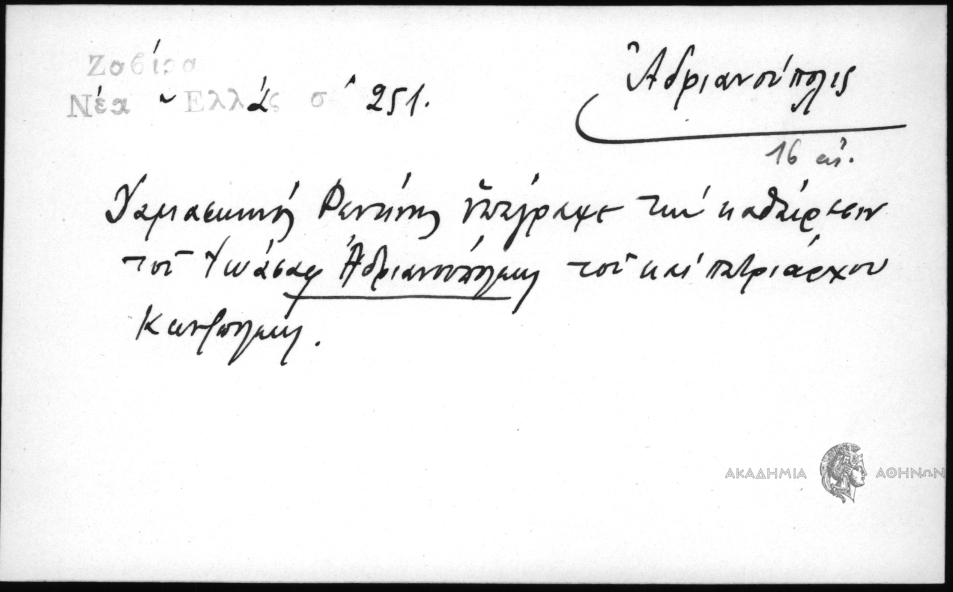 Ζαβίρα
Νέα Ἑλλάς σ 251.
Ἀδριανούπολις
16 αἰ.
Δαμασκηνὸς Ρενδίνης ὑπέγραψε τὴν καθαίρεσιν
τοῦ Ἰωάσαφ Ἀδριανουπόλεως τοῦ καὶ πατριάρχου
Κων/πόλεως.
ΑΚΑΔΗΜΙΑ ΑΘΗΝΩΝ